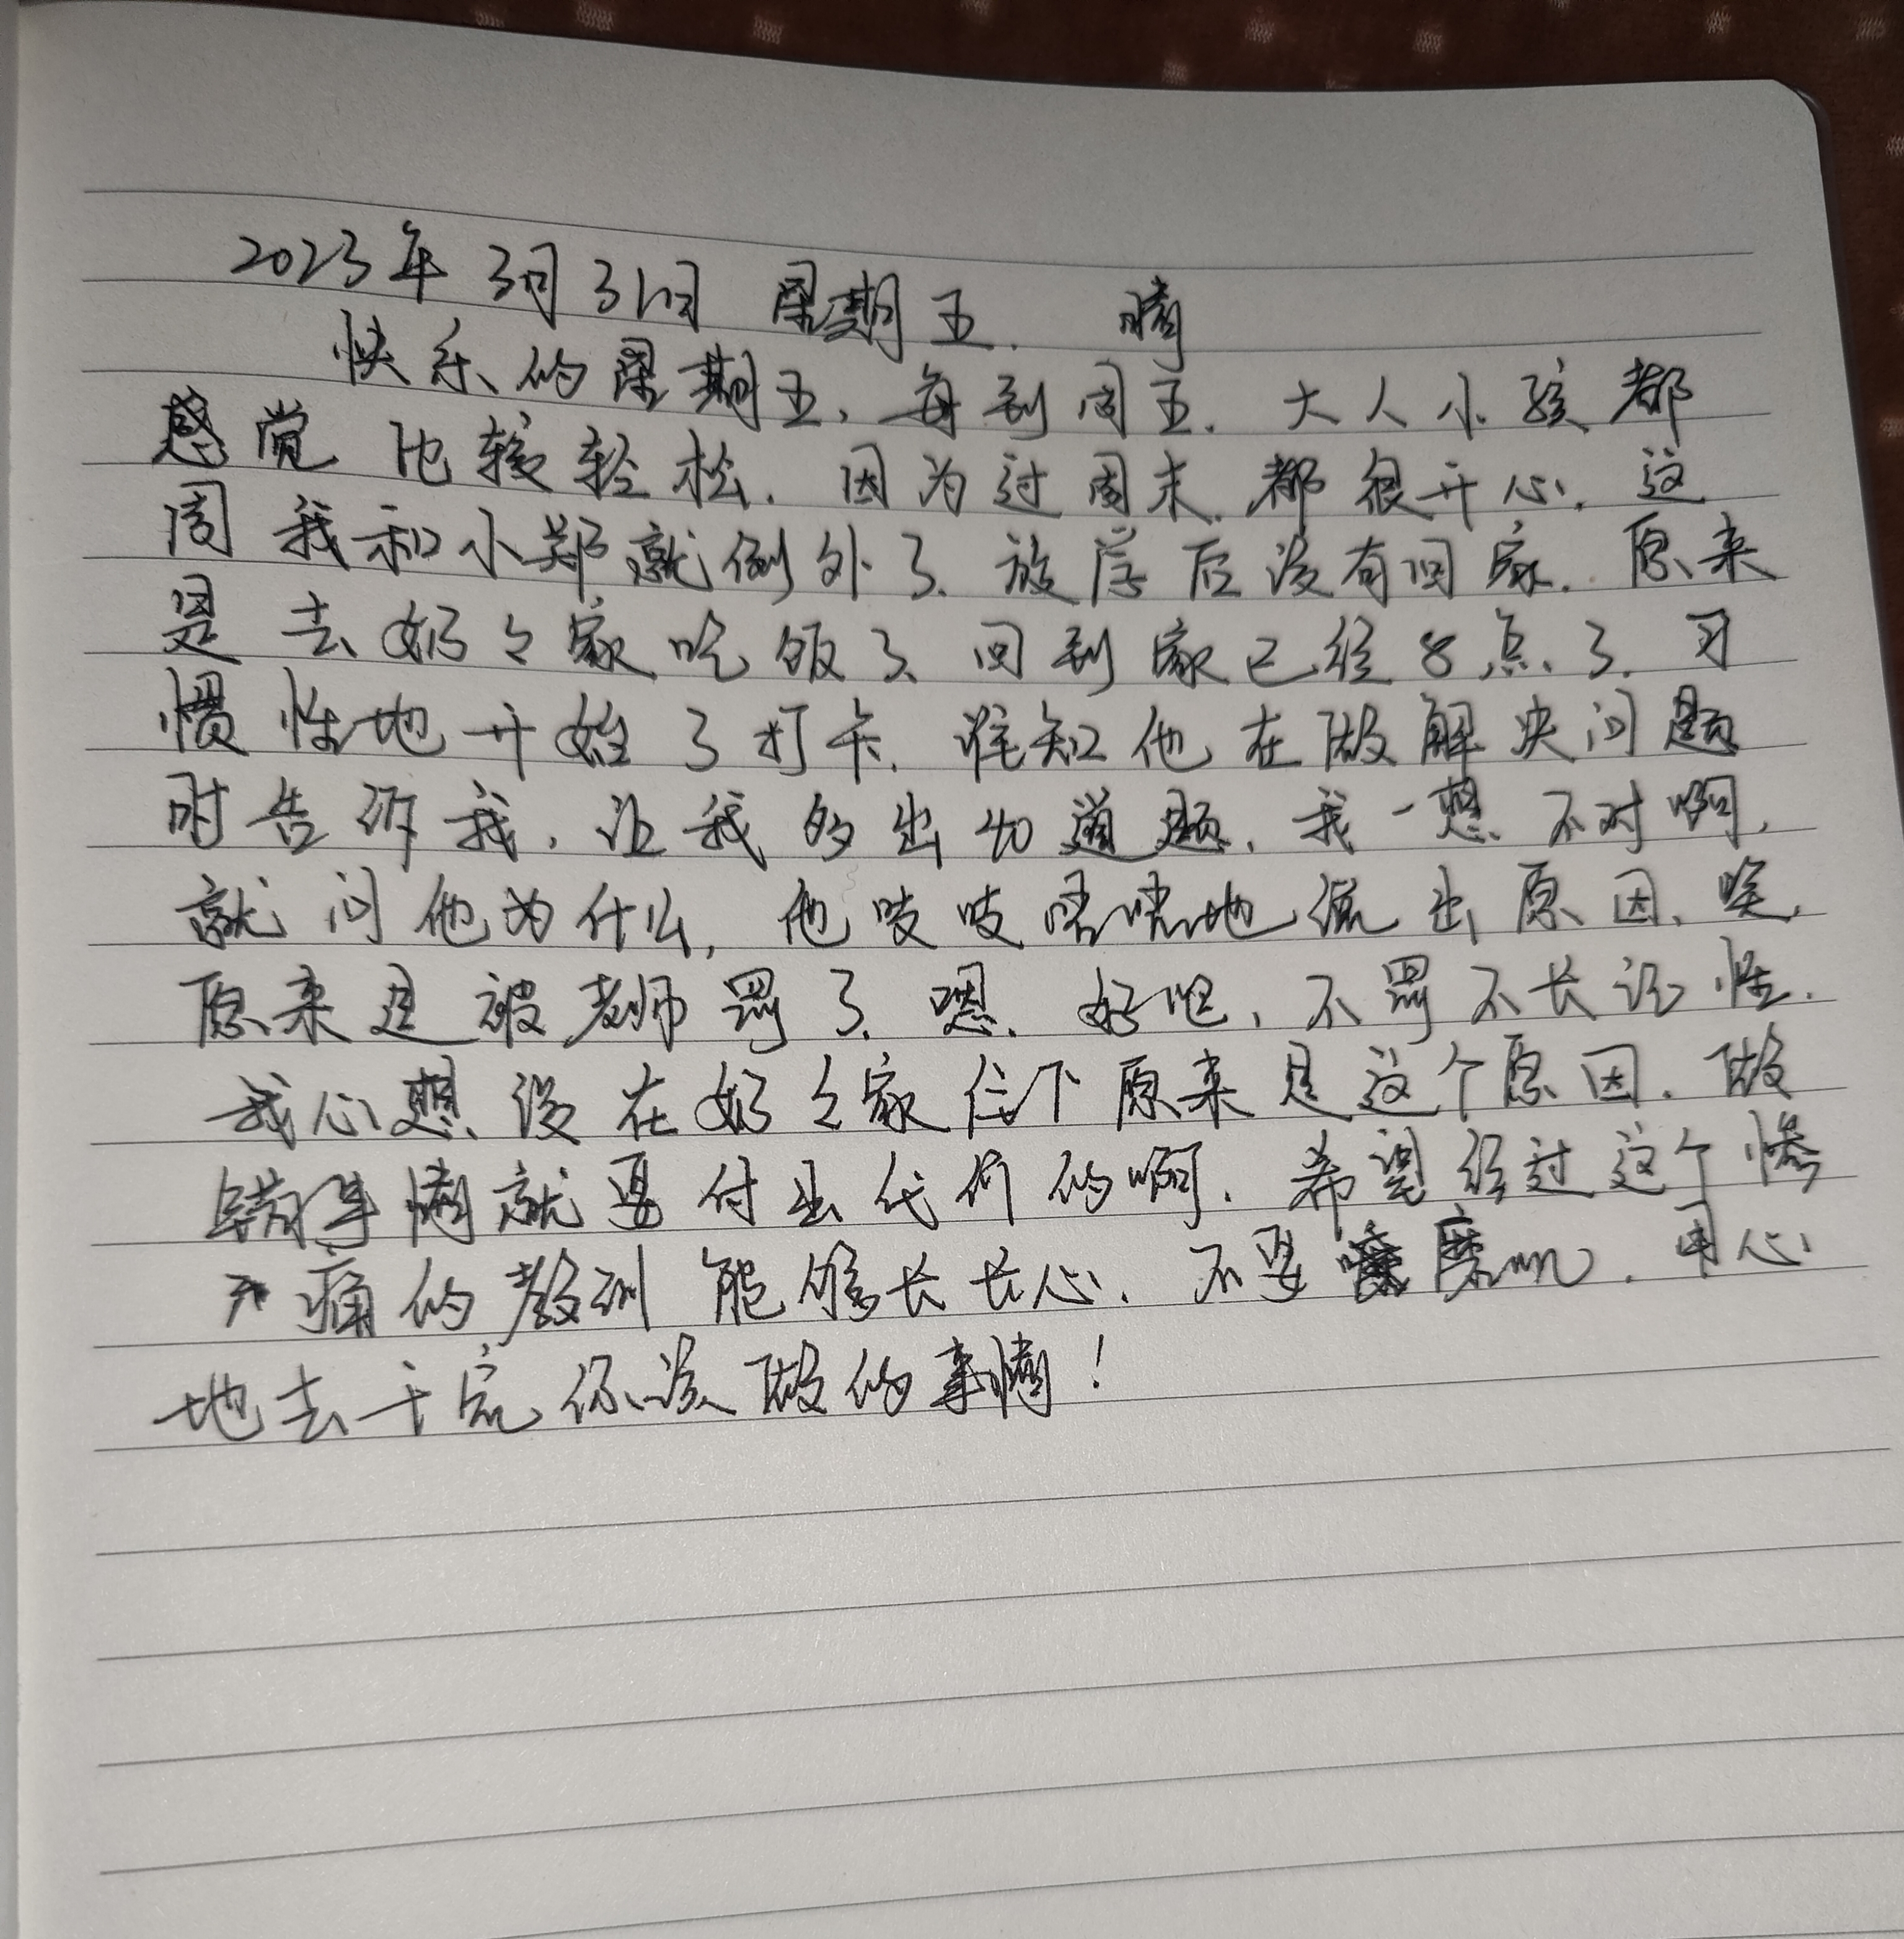 2023年3月31日 星期五. 晴
快乐的星期五,每到周五.大人小孩都
感觉比较轻松.因为过周末.都很开心.这
周我和小郑就例外了.放学后没有回家.原来
是去奶々家吃饭了.回到家已经8点了.习
惯性地开始了打卡.谁知他在做解决问题
时告诉我,让我多出40道题.我一想不对啊,
就问他为什么,他吱吱唔唔地说出原因.唉,
原来是被老师罚了.嗯.好吧,不罚不长记性.
我心想没在奶々家住下原来是这个原因.做
错事情就要付出代价的啊.希望经过这个惨
痛的教训能够长长心.不要磨叽.用心
地去干完你该做的事情!